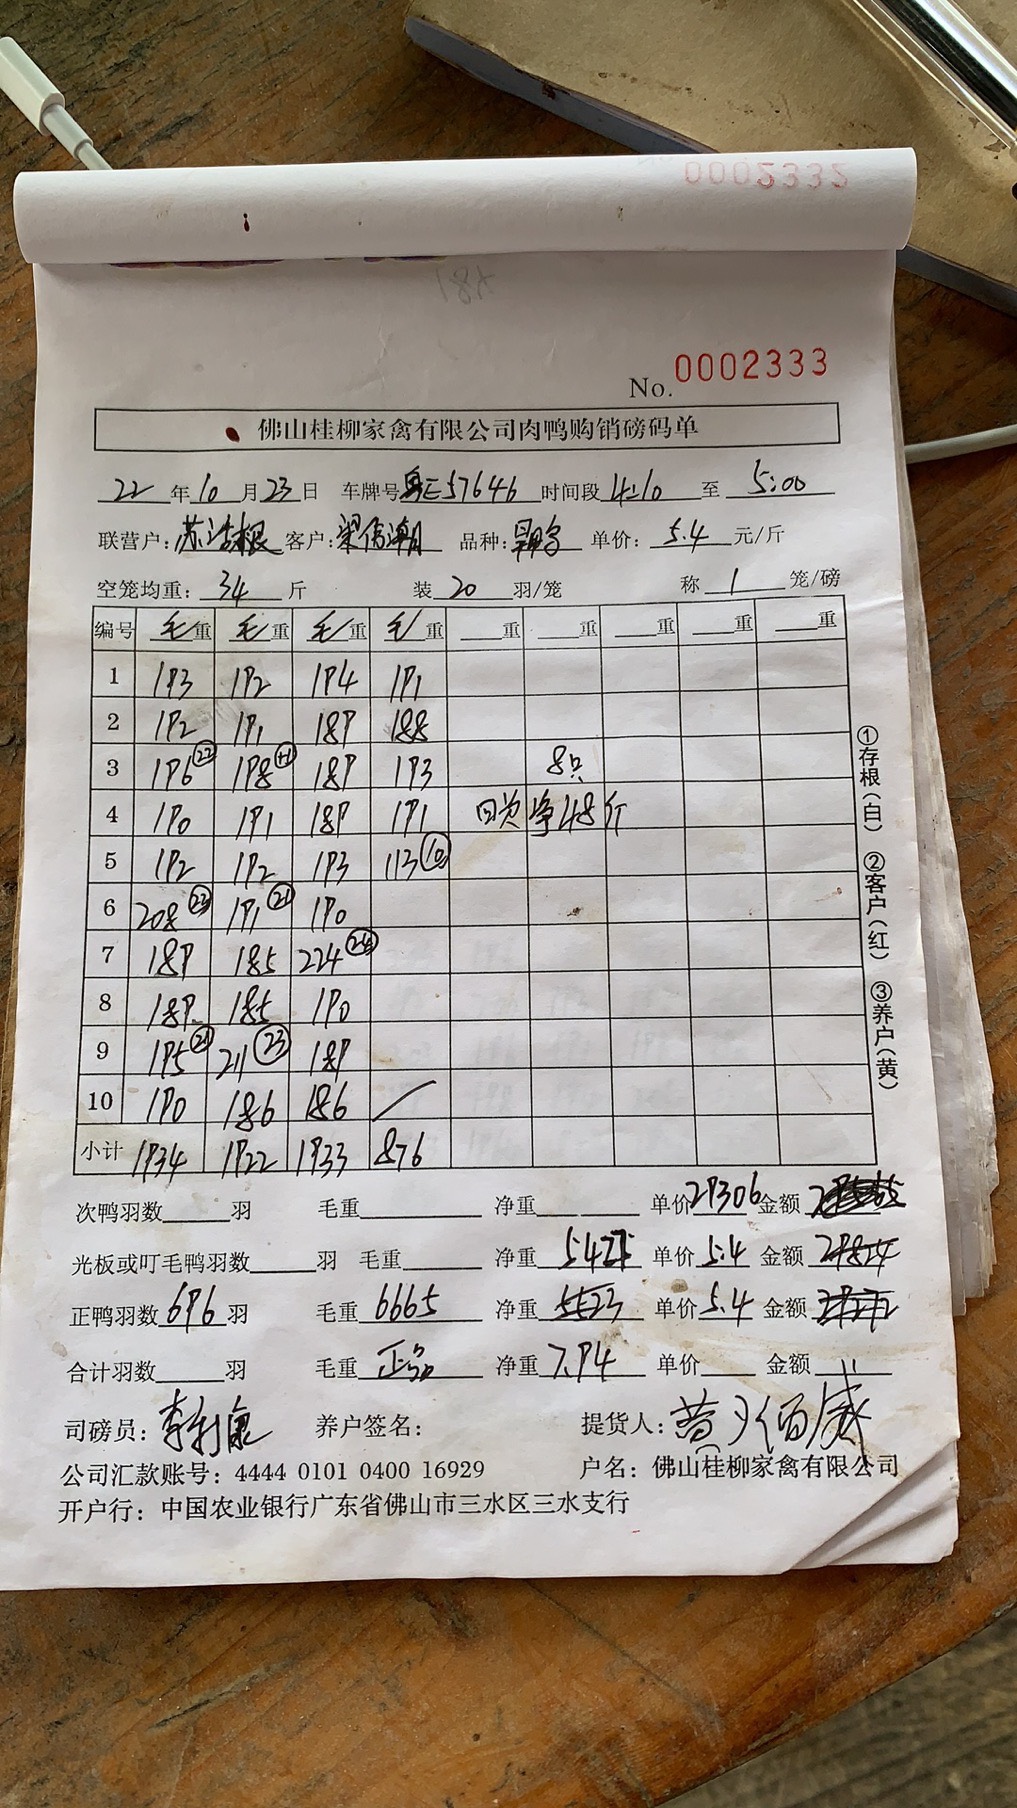 0002332
No. 0002333
佛山桂柳家禽有限公司肉鸭购销磅码单
22 年 10 月 23 日 车牌号 粤E57646 时间段 4:10 至 5:00
联营户: 苏 根 客户: 梁伟潮 品种: 单价: 5.4 元/斤
空笼均重: 34 斤 装 20 羽/笼 称 1 笼/磅
编号 毛重 毛重 毛重 毛重 重 重 重 重 重
1 193 192 194 191
2 192 191 189 188
3 196 (22) 198 189 193 8只
4 190 191 189 191 净48斤
5 192 192 193 113 (12)
6 208 (23) 191 (21) 190
7 189 185 224 (24)
8 189 185 190
9 195 (21) 211 (23) 189
10 190 186 186
小计 1934 1922 1933 876
次鸭羽数 羽 毛重 净重 单价 29306 金额
光板或叮毛鸭羽数 羽 毛重 净重 单价 5.4 金额
正鸭羽数 696 羽 毛重 6665 净重 5523 单价 5.4 金额
合计羽数 羽 毛重 净重 7.94 单价 金额
司磅员: 李利康 养户签名: 提货人:
公司汇款账号: 4444 0101 0400 16929 户名: 佛山桂柳家禽有限公司
开户行: 中国农业银行广东省佛山市三水区三水支行
①存根(白) ②客户(红) ③养户(黄)